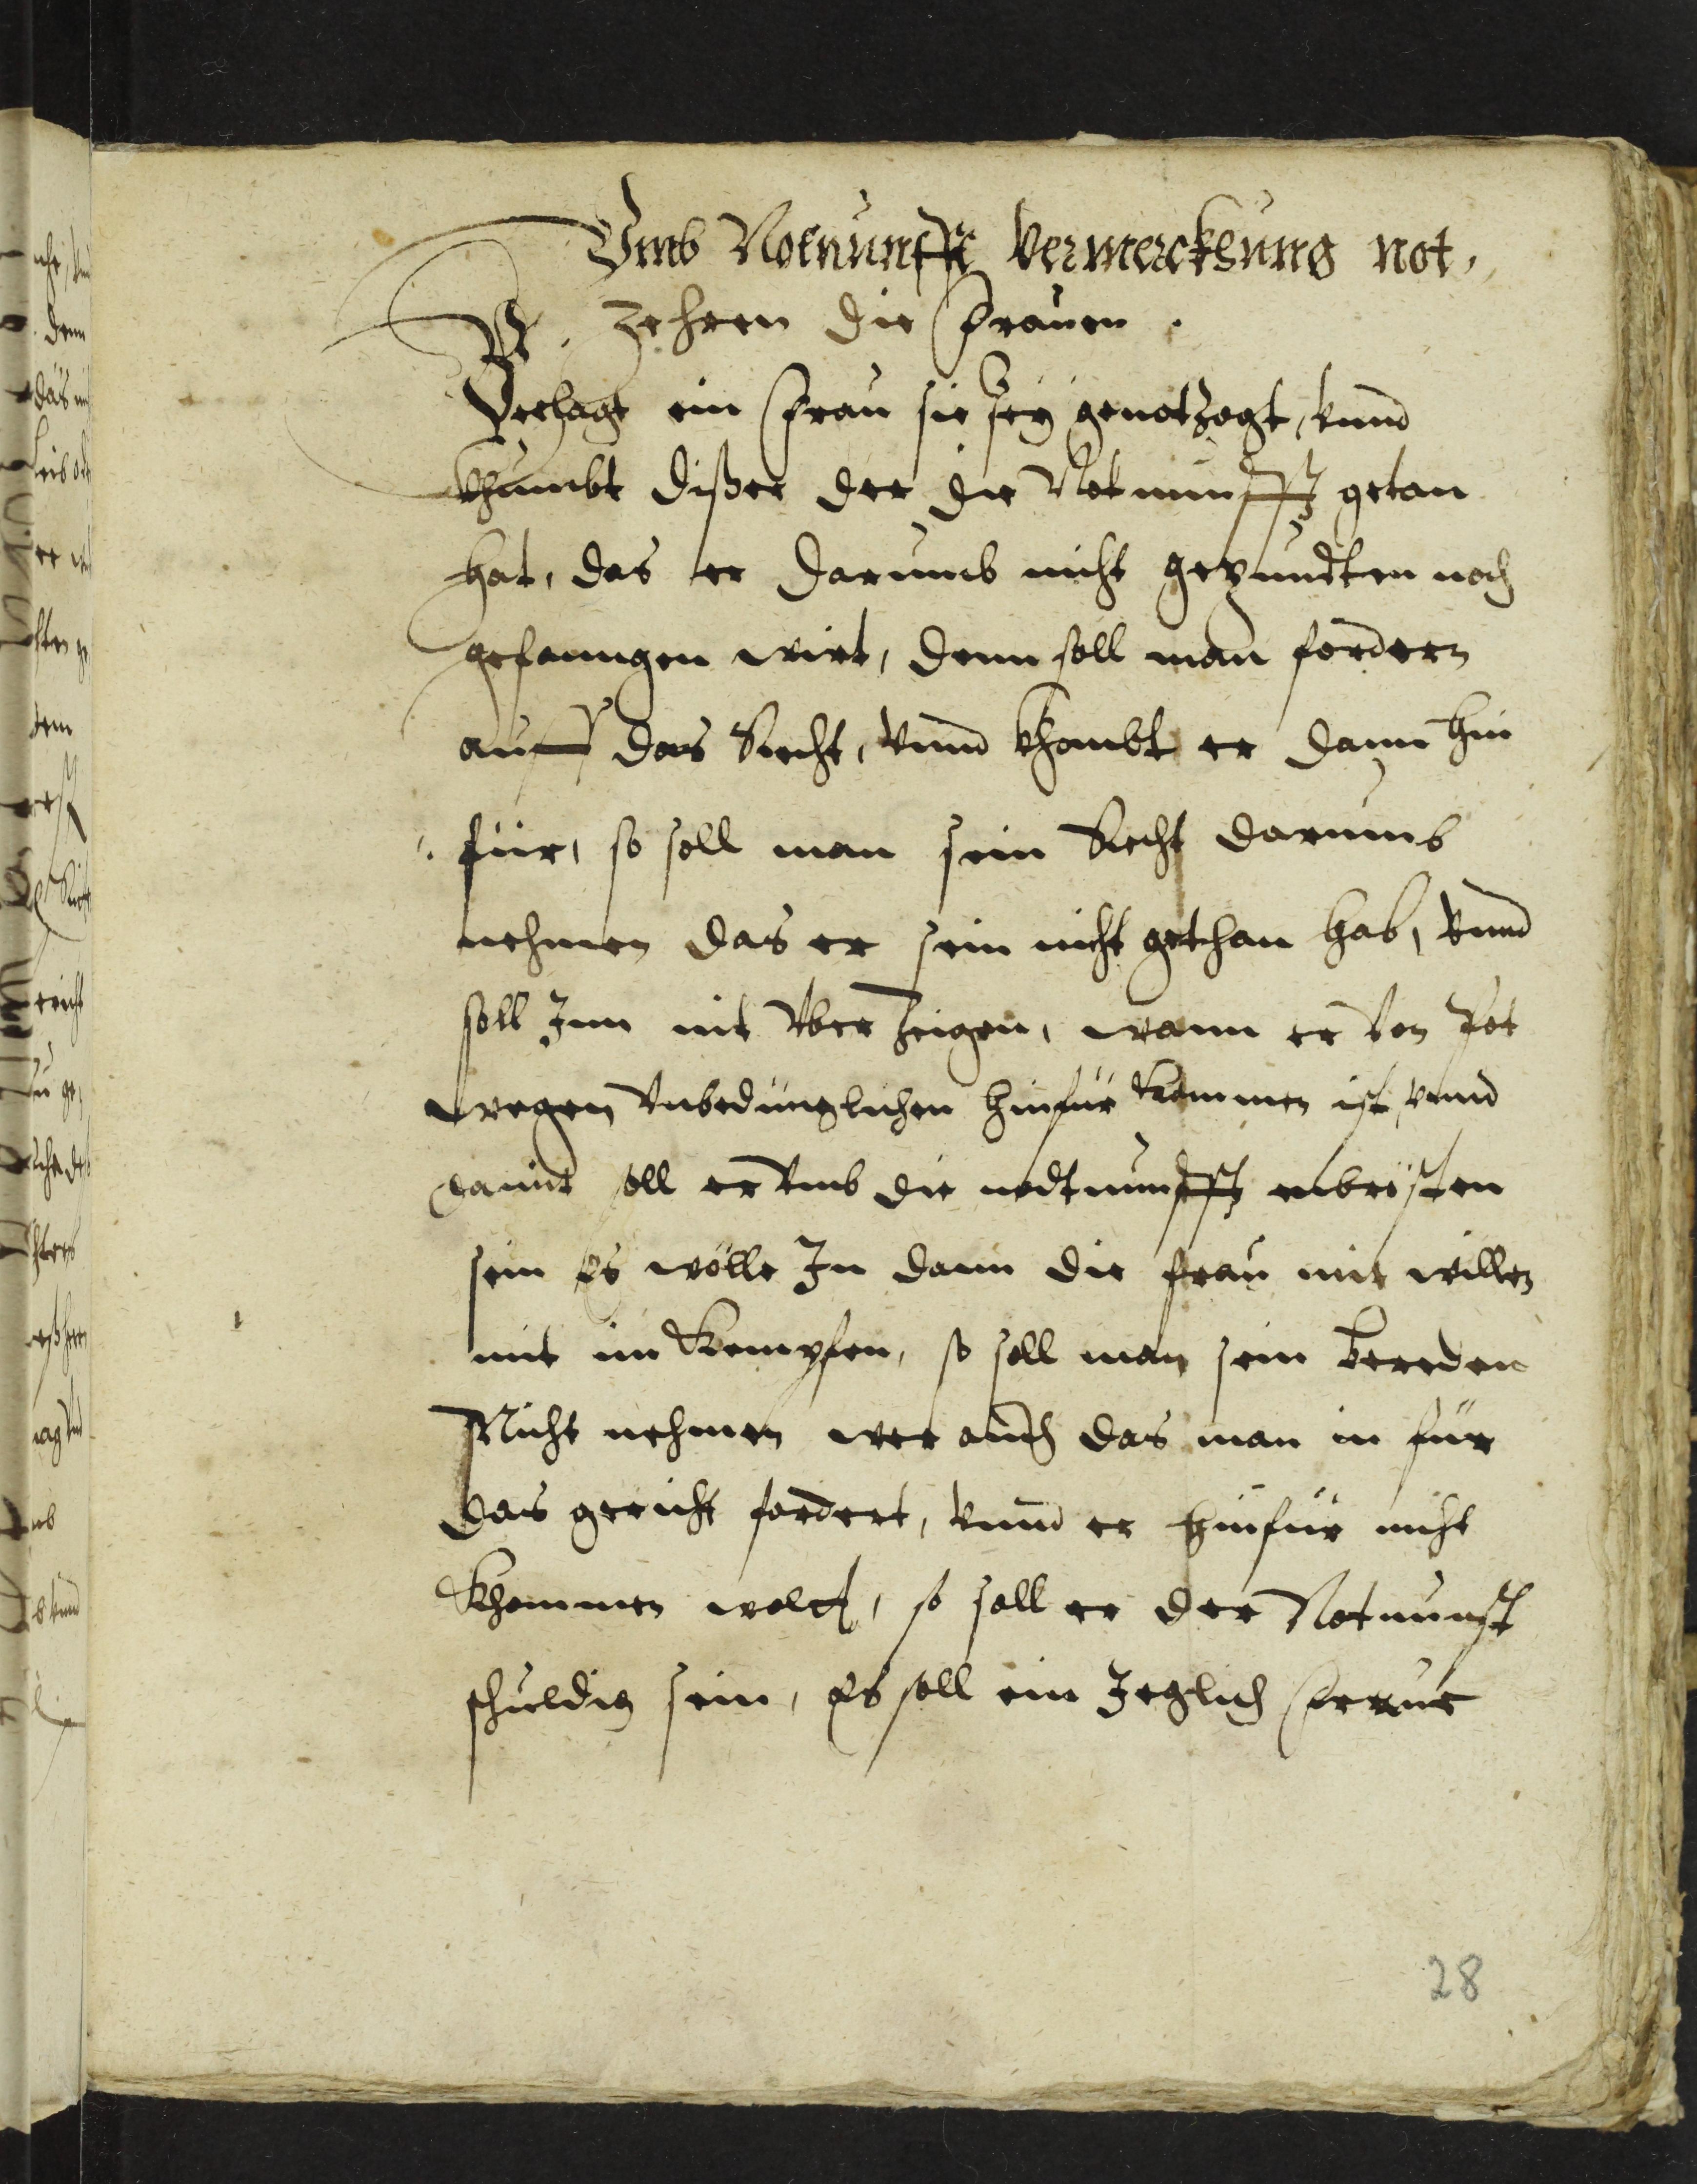 Vmb Notnunfft vermerckhung not,
zehren die Frauen.
Verlagt ein Frau sie sey genotzogt, vnnd
khumbt dißer der die Notnunfft getan
hat, das er darumb nicht gepundten noch
gefanngen wirt, denn soll man fordern
auff das Recht, vnnd khombt er dann hin
für, so soll man sein Recht darumb
nehmen das er sein nicht gethan hab, vnnd
soll Inn nit vber Zeigen, wann er von Pot
wegen vnbedünglichen hinfür kommen ist, vnnd
damit soll er vmb die nodtnunfft enbristen
sein Es wölle In dann die frau mit willen
mit im Kempfen, so soll man sein bereden
Nicht nehmen wer auch das man in für
das gericht fordert, vnnd er hinfür nicht
khommen wolt, so soll er der Notnunfft
schuldig sein, Es soll ein Jeglich Fraue
28